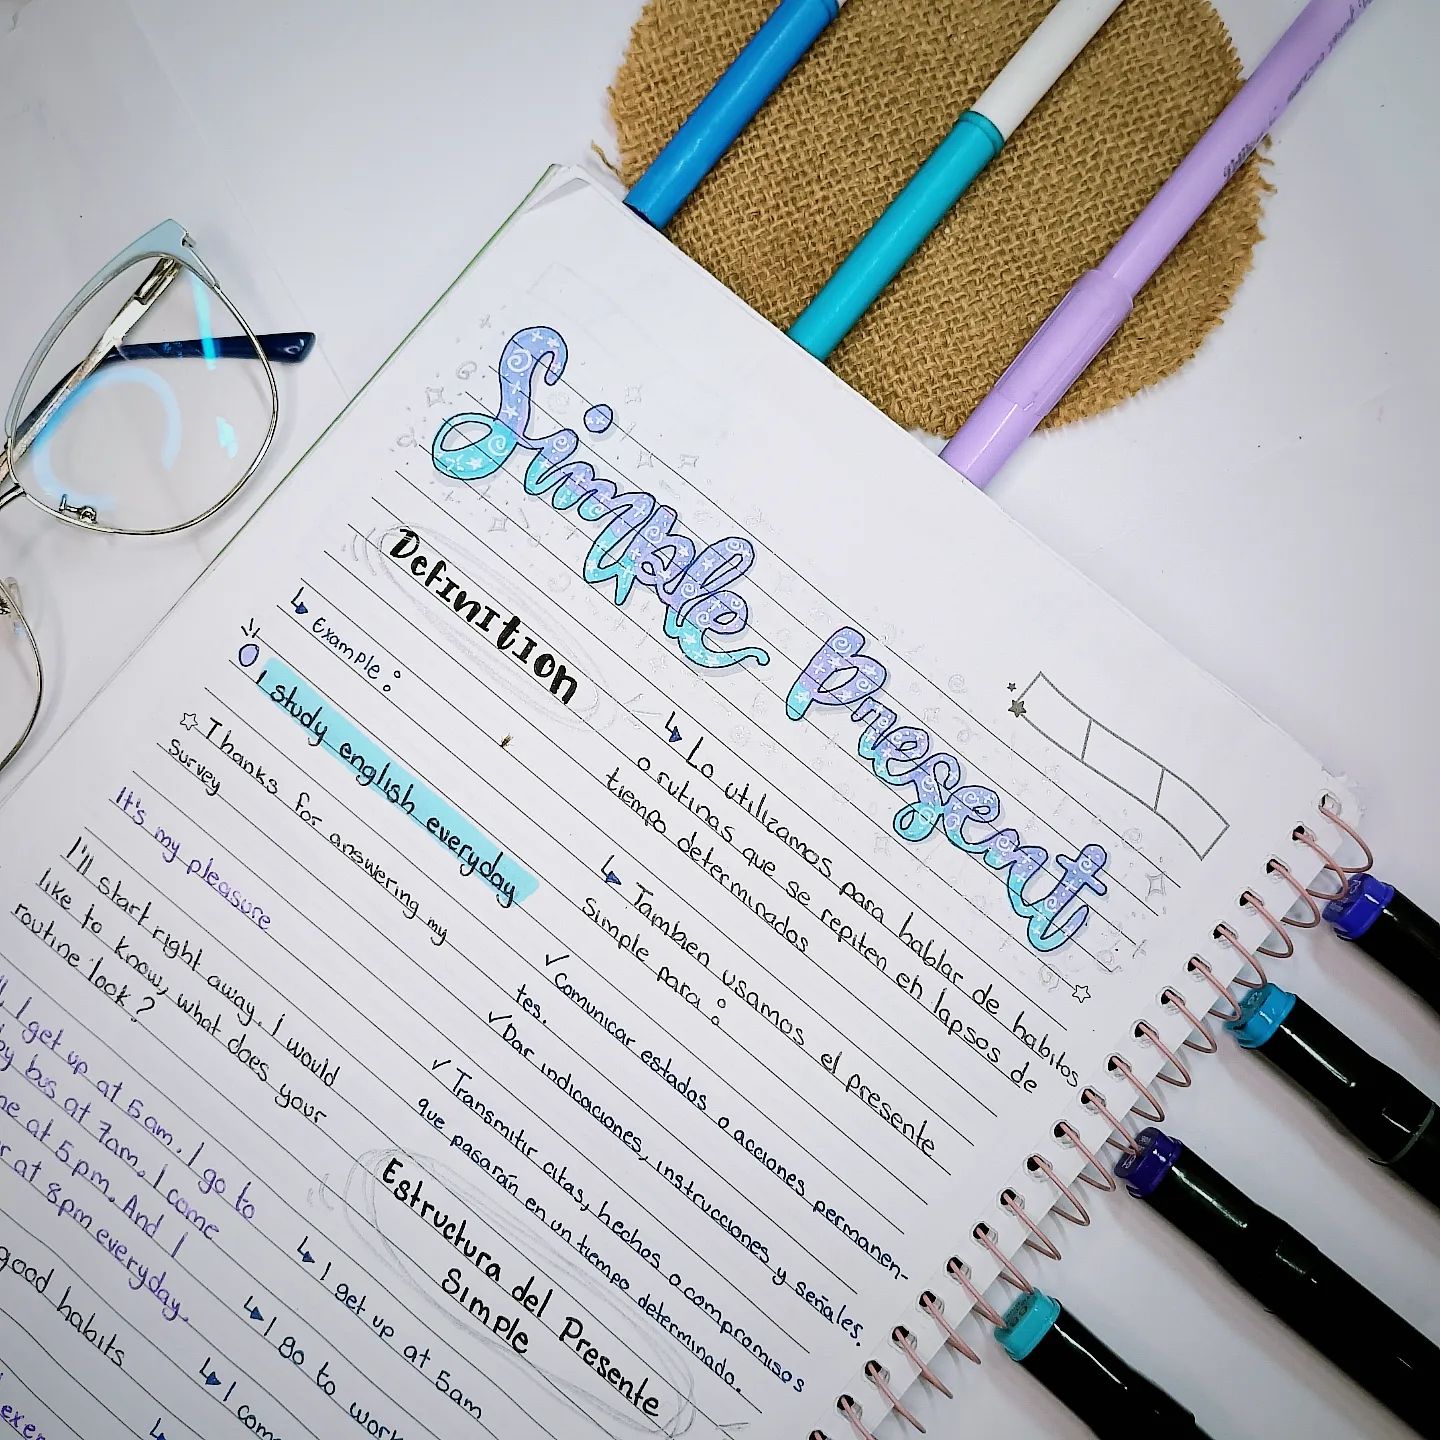 Simple present
Definition
↳ Lo utilizamos para hablar de habitos
o rutinas que se repiten en lapsos de
tiempo determinados
↳ Tambien usamos el presente
simple para:
✓ Comunicar estados o acciones permanen-
tes.
✓ Dar indicaciones, instrucciones y señales.
✓ Transmitir citas, hechos o compromisos
que pasarán en un tiempo determinado.
Estructura del Presente
Simple
↳ I get up at 5am
↳ I go to work
↳ I come
↳ Example:
I study english everyday
☆ Thanks for answering my
survey
It's my pleasure
I'll start right away. I would
like to know, what does your
routine look?
I get up at 5am. I go to
by bus at 7am. I come
at 5pm. And I
at 8pm everyday.
good habits